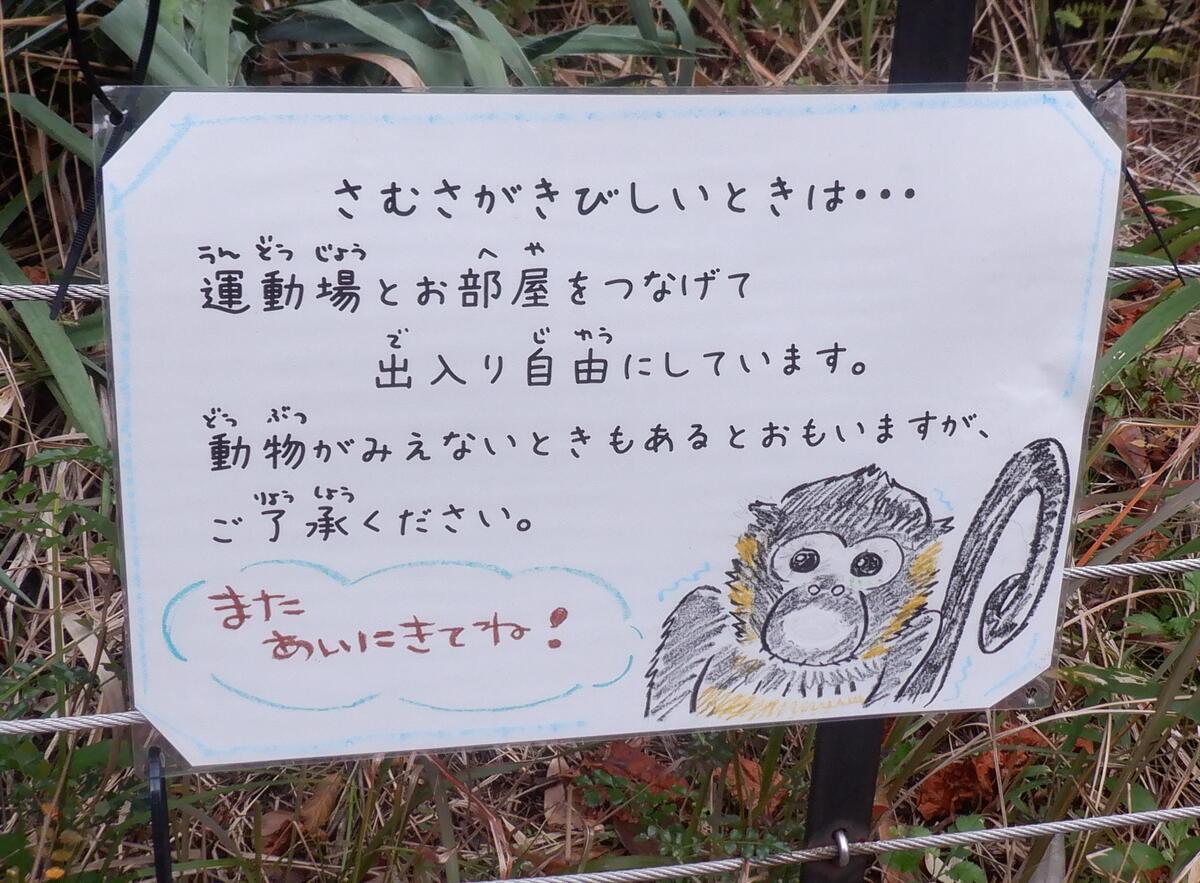 さむさがきびしいときは・・・
うんどうじょう へや
運動場とお部屋をつなげて
で じゆう
出入り自由にしています。
どうぶつ
動物がみえないときもあるとおもいますが、
りょうしょう
ご了承ください。
また
あいにきてね!